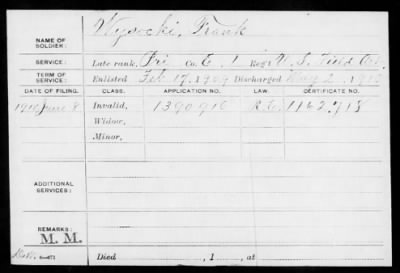 NAME OF SOLDIER: Wysocki, Frank
SERVICE: Late rank, Pri Co. E, 1 Reg't U.S. Field Art.
TERM OF SERVICE: Enlisted Feb. 17, 1909 Discharged May 2, 191
DATE OF FILING. CLASS. APPLICATION NO. LAW. CERTIFICATE NO.
June 8 Invalid, 1390910 1162718
Widow,
Minor,
ADDITIONAL SERVICES:
REMARKS:
M. M.
Died , 1 , at